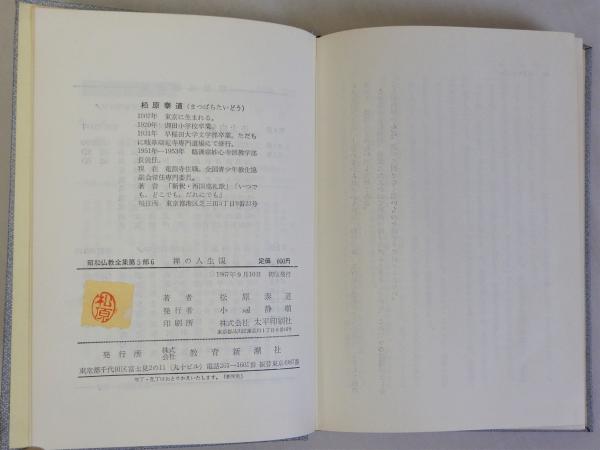 松原泰道(まつばらたいどう)
1907年 東京に生まれる。
1920年 御田小学校卒業。
1931年 早稲田大学文学部卒業。ただちに岐阜瑞龍寺専門道場にて修行。
1951年―1953年 臨済宗妙心寺派教学部長就任。
現在 龍源寺住職。全国青少年教化協議会常任専門委員。
著書 「新釈・西国巡礼歌」「いつでも、どこでも、だれにでも」
現住所 東京都港区芝三田5丁目9番23号
昭和仏教全集第5部6 禅の人生観 定価
1967年9月10日 初版発行
松原
著者 松原泰道
発行者 小 静
印刷所 株式会社 太平印刷社
発行所 株式会社 教育新潮社
東京都千代田区富士見2の11(九十ビル)電話263
落丁・乱丁はおとりかえいたします。